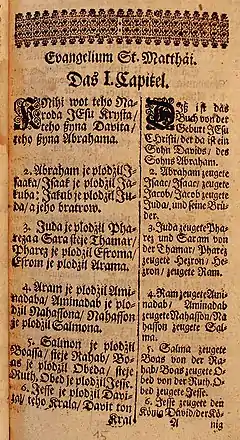 Evangelium St. Matthäi.
Das I. Capitel.
Knihi wot teho Na-
roda JEsu Krysta/
teho ßyna Davita/
teho ßyna Abrahama.
2. Abraham je plodżil J-
saaka/ Jsaak je plodżil Ja-
kuba: Jakub je plodżil Ju-
da/ a jeho bratrow.
3. Juda je plodżil Pha-
reza a Sara steje Thamar/
Pharez je plodżil Efroma/
Efrom je plodżil Arama.
4. Aram je plodżil Ami-
nadaba/ Aminadab je plo-
dżil Nahassona/ Nahasson
je plodżil Salmona.
5. Salmon je plodżil
Boassa/ steje Rahab/ Bo-
as je plodżil Obeda/ steje
Ruth. Obed je plodżil Jesse.
6. Jesse je plodżil Davi-
ta/ teho Krala/ Davit ton
Kral
Diß ist das
Buch von der
Geburt JEsu
Christi/ der da ist ein
Sohn Davids/ des
Sohns Abraham.
2. Abraham zeugete
Jsaac/ Jsaac/ zeugete
Jacob/ Jacob zeugete
Juda/ und seine Brü-
der.
3. Juda zeugete Pha-
rez und Saram von
der Thamar/ Pharez
zeugete Hezron/ He-
zron/ zeugete Ram.
4. Ram zeugete Ami-
nadab/ Aminadab
zeugete Nahasson/ Na-
hasson zeugete Sal-
ma.
5. Salma zeugete
Boas von der Ra-
hab/ Boas zeugete O-
bed von der Ruth. O-
bed zeugete Jesse.
6. Jesse zeugete den
König David/ der Kö-
A nig